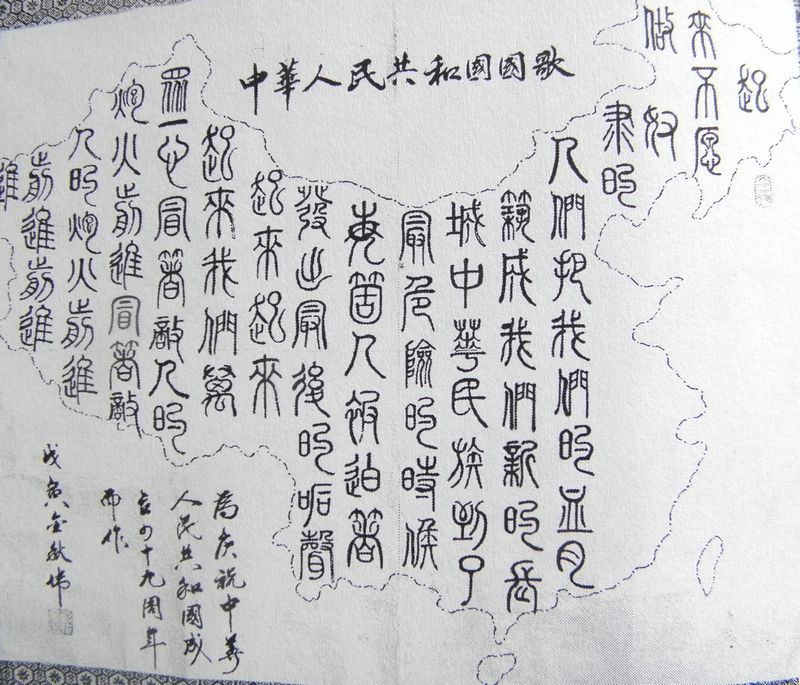 中華人民共和國國歌
起
來不愿
做奴
隶的
人們把我們的血肉
築成我們新的長
城中華民族到了
最危險的時候
每箇人被迫著
發出最後的吼聲
起來起來
起來我們萬
眾一心冒著敵人的
炮火前進冒著敵
人的炮火前進
前進前進
進
為庆祝中華
人民共和國成
立四十九周年
而作
戊寅金秋